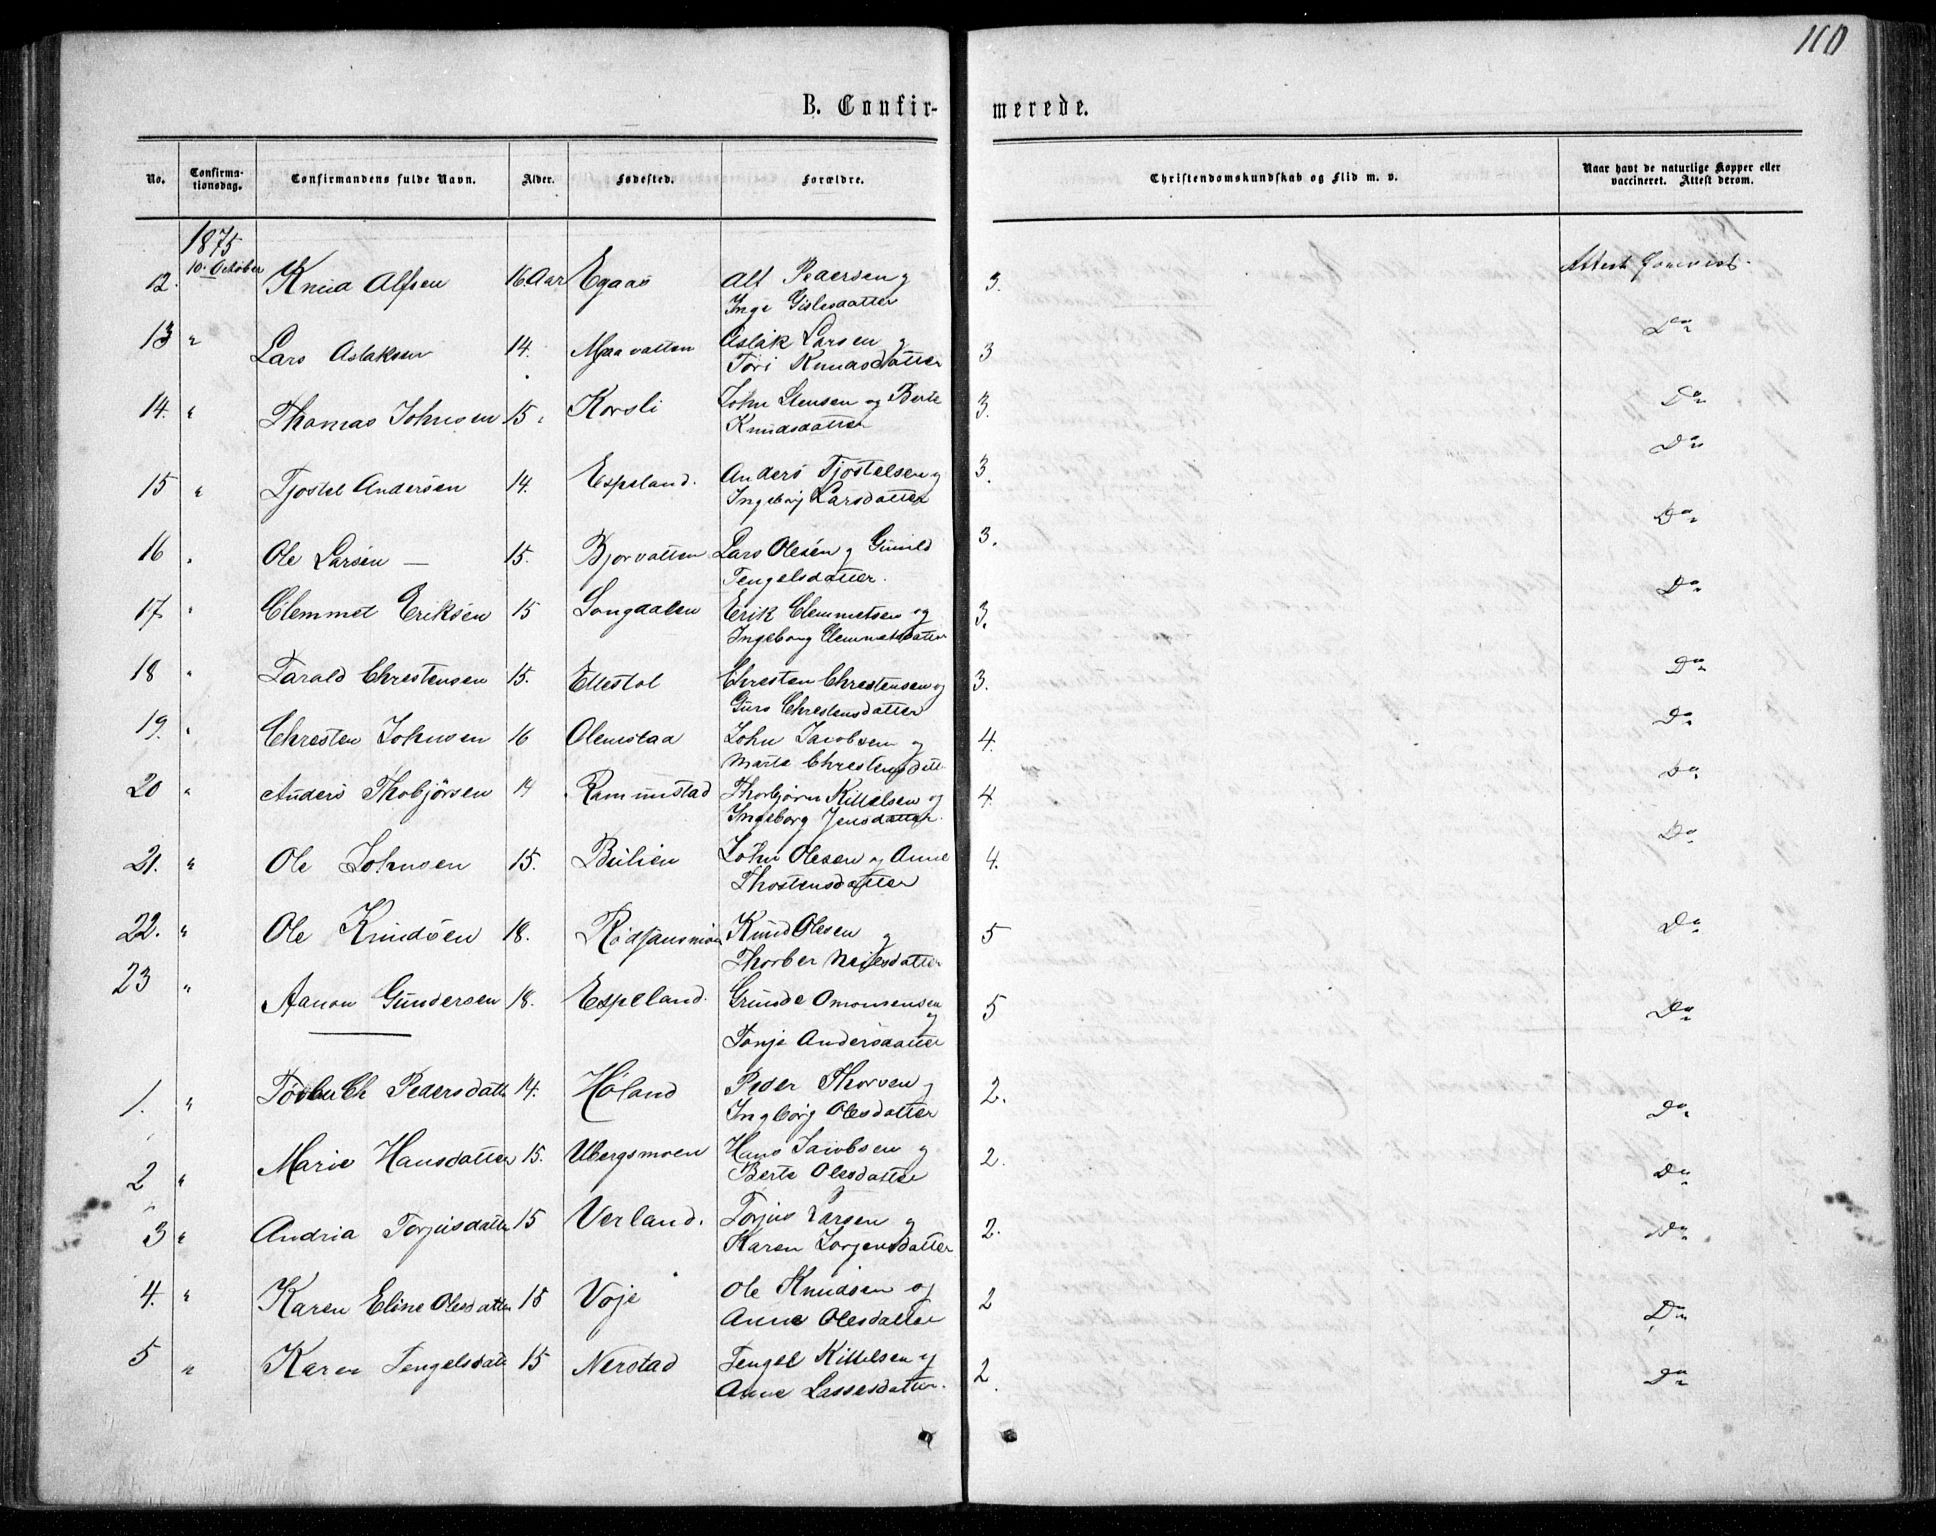 110
B. Confirmerede.
No. Confirmationsdag. Confirmandens fulde Navn. Alder. Fødested. Forældre. Christendomskundskab og Flid m. v. Naar havt de naturlige Kopper eller vaccineret. Attest derom.
1875
12. 10. October Knud Alfsen 16 Aar Egaas Alf Pedersen og 3. Attest
Inge Gislesdatter
13 " Lars Aslaksen 14. Maavatten Aslak Larsen og 3 Do
Tori Knudsdatter
14. " Thomas Johnsen 15. Korsli John Stensen og Berte 3. Do
Knudsdatter
15 " Tjostel Andersen 14. Espeland. Anders Tjostelsen og 3. Do
Ingeborg Larsdatter
16 " Ole Larsen — 15. Bjorvatten Lars Olesen og Gunild 3. Do
Tengelsdatter.
17 " Clemmet Eriksen 15 Songdalen Erik Clemmetsen og 3. Do
Ingeborg Clemmetsdatter
18 " Tarald Chrestensen 15. Ellestol Chresten Chrestensen og 3. Do
Guro Chrestensdatter
19. " Chresten Johnsen 16 Olimstad John Jacobsen og 4. Do
Marte Chrestensdatt
20 " Anders Thobjørsen 14 Ramunstad Thorbjørn Kittelsen og 4. Do
Ingeborg Jensdatter.
21. " Ole Johnsen 15. Bulien John Olesen og Anne 4. Do
Thostensdatter
22. " Ole Knudsen 18. Knud Olesen og 5 Do
Thorber Nilsdatter
23 " Aanon Gundersen 18. Espeland. Grunde Omonsen 5 Do
og
Tonje Andersdatter
1. " Pedersdatte 14. Høland Peder Thorsen og 2. Do
Ingborg Olesdatter
2 " Marie Hansdatter 15. Ubergsmoen Hans Jacobsen og 2. Do
Berte Olesdatter
3 " Andria Torjusdatte 15 Verland. Torjus Larsen og 2. Do
Karen Jorgensdatter
4. " Karen Eline Olesdatter 15 Voje Ole Knudsen og 2 Do
Anne Olesdatter
5 " Karen Tengelsdatt 15 Nerstad Tengel Kittelsen og 2. Do
Anne Lassesdatter.